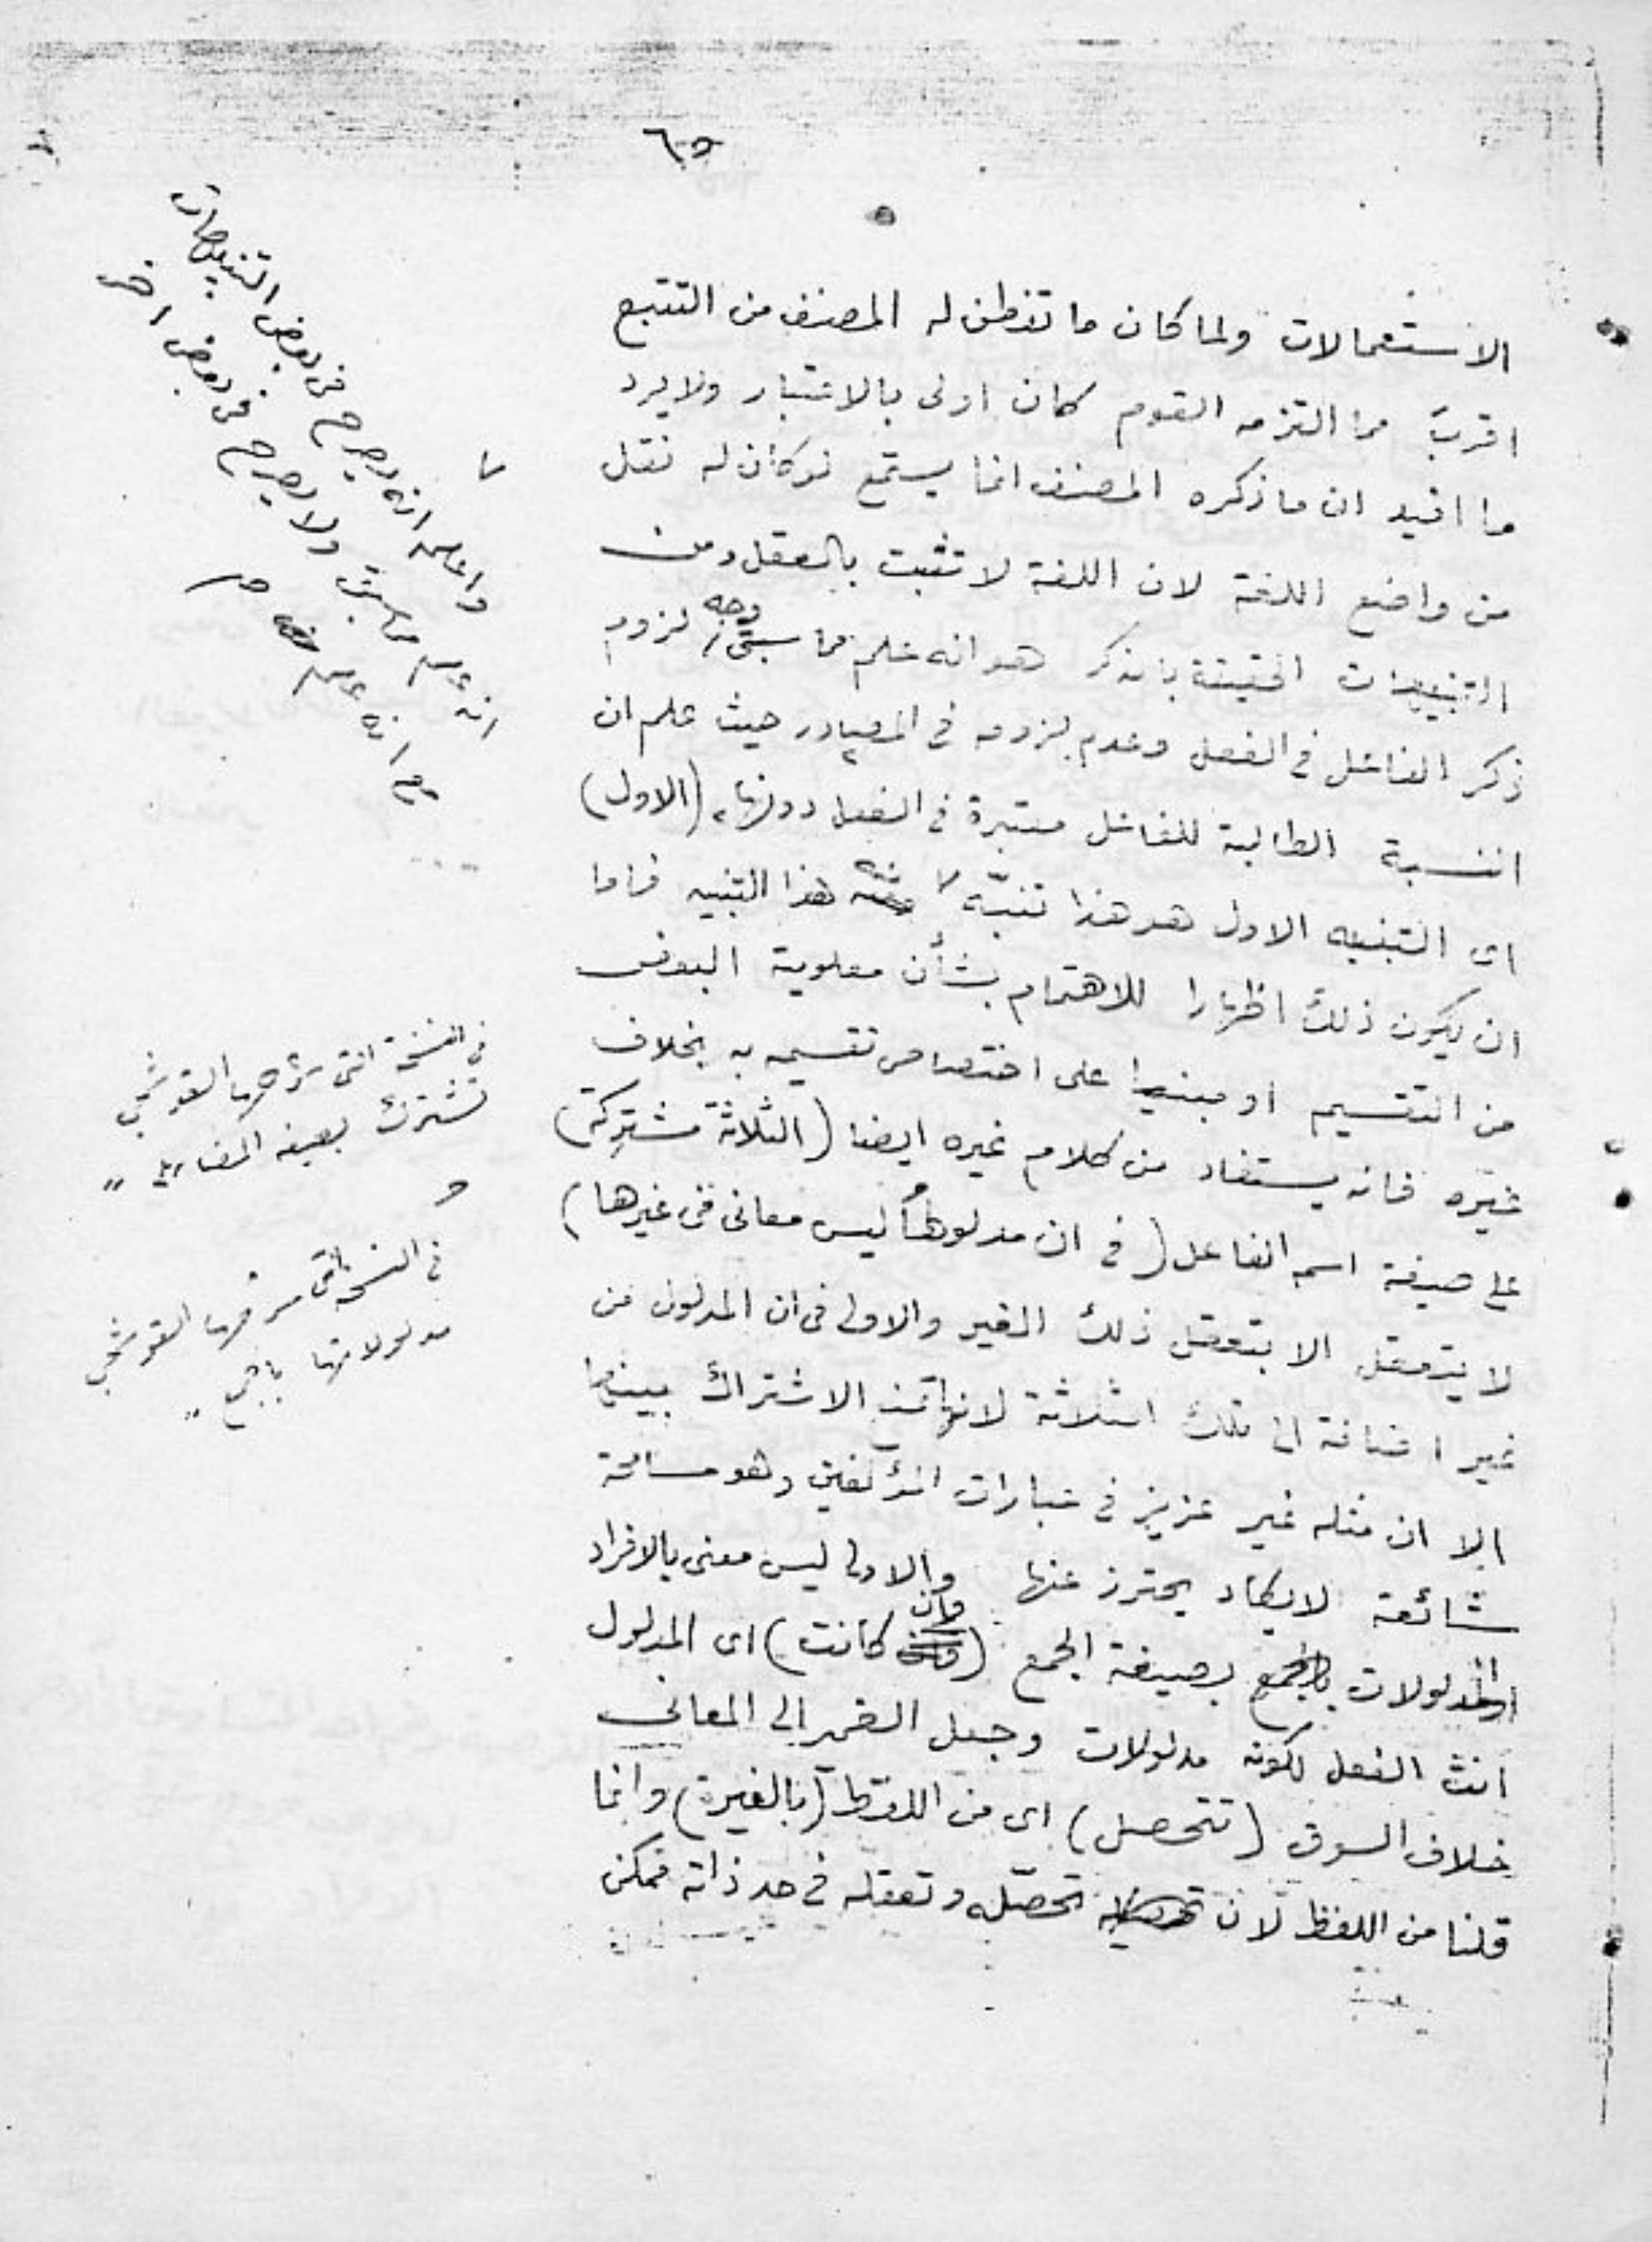 ٦٥
الاستعمالات ولما كان ما تفطن له المصنف من التتبع
اقربَ مما التزمه القوم كان اولى بالاعتبار ولا يرد
ما افيد ان ما ذكره المصنف انما يستمع لو كان له نقل
من واضع اللغة لان اللغة لا تثبت بالعقل ومن
التنبيهات الحقيقة بان يذكر هو انه علم مما سبق وجه لزوم
ذكر الفاعل في الفعل وعدم لزومه في المصادر حيث علم ان
النسبة الطالبة للفاعل معتبرة في الفعل دونها (الاول)
اى التنبيه الاول هو هذا تنبّه هذا التنبيه فاما
ان يكون ذلك اظهارا للاهتمام بشأن معلومية البعض
من التقسيم او مبنيا على اختصاص تقسيمه به بخلاف
غيره فانه يستفاد من كلام غيره ايضا (الثلاثة مشتركة)
على صيغة اسم الفاعل (في ان مدلولها ليس معانى في غيرها)
لا يتعقل الا بتعقل ذلك الغير والاولى في ان المدلول من
غير اضافة الى تلك الثلاثة لانها الاشتراك بينها
الا ان مثله غير عزيز في عبارات المؤلفين وهو مسامحة
شائعة لا يكاد يحترز عنها والاولى ليس معنى بالافراد
او المدلولات بصيغة الجمع (وان كانت) اى المدلول
انث الفعل لكونه مدلولات وجعل الضمير الى المعانى
خلاف السوق (تتحصل) اى من اللفظ (بالغير) وانما
قلنا من اللفظ لان تحصّله وتعقله في حد ذاته ممكن
واعلم انه يصرح في بعض التنبيهات
انه علم مما سبق ولا يصرح في بعض اخر
مع انه علم
في النسخة التى شرحها القوشجي
تشترك بصيغة المضارع "
في النسخة التى شرحها القوشجي
مدلولاتها بالجمع "